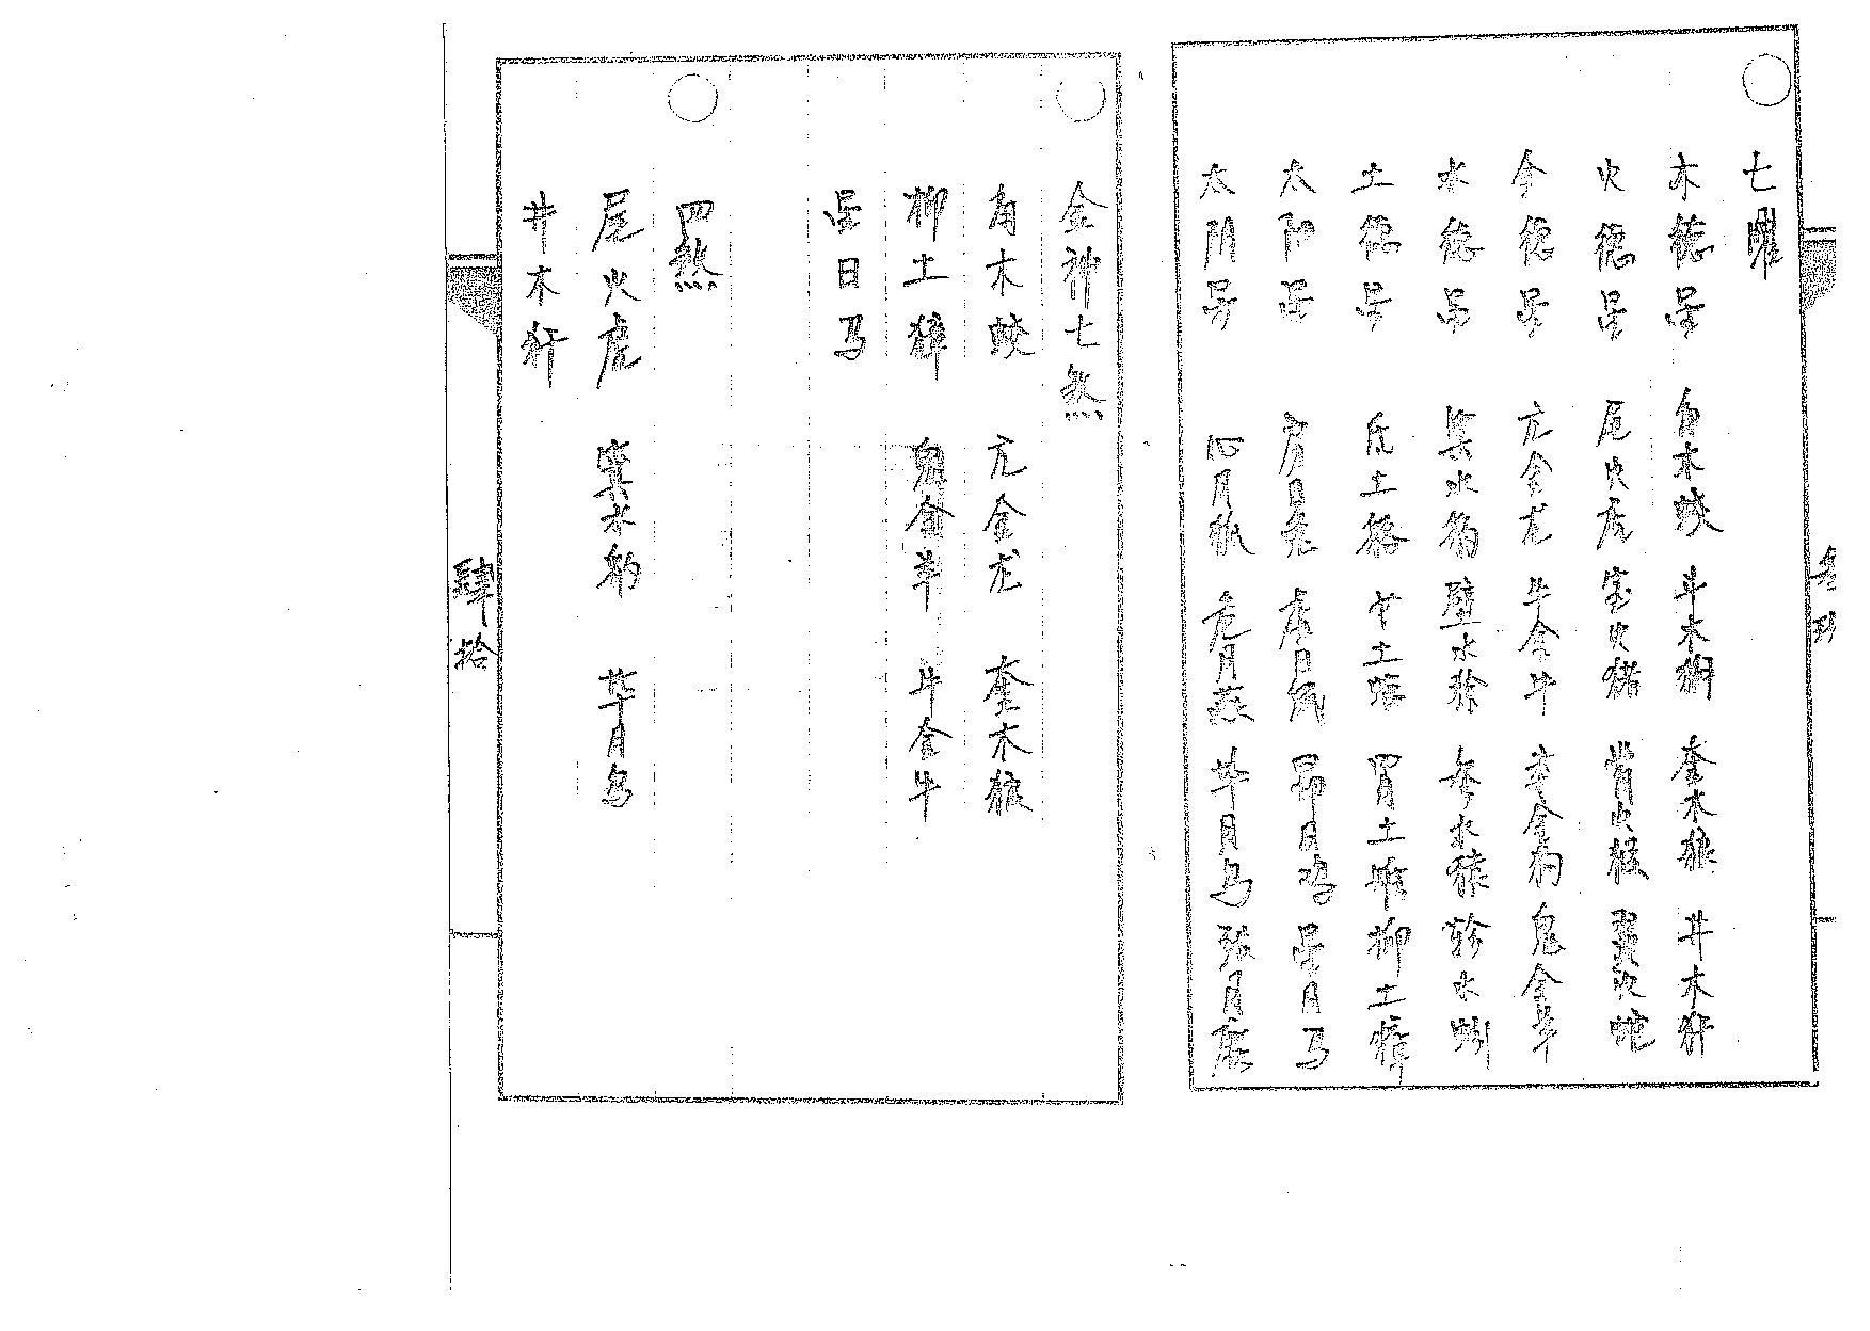 七曜
木德星 角木蛟 斗木獬 奎木狼 井木犴
火德星 尾火虎 室火猪 觜火猴 翼火蛇
金德星 亢金龙 牛金牛 娄金狗 鬼金羊
水德星 箕水豹 壁水㺄 参水猿 轸水蚓
土德星 氐土貉 女土蝠 胃土雉 柳土獐
太阳星 房日兔 虚日鼠 昴日鸡 星日马
太阴星 心月狐 危月燕 毕月乌 张月鹿
金神七煞
角木蛟 亢金龙 奎木狼
柳土獐 鬼金羊 牛金牛
星日马
四煞
尾火虎 箕水豹 毕月乌
井木犴
肆拾